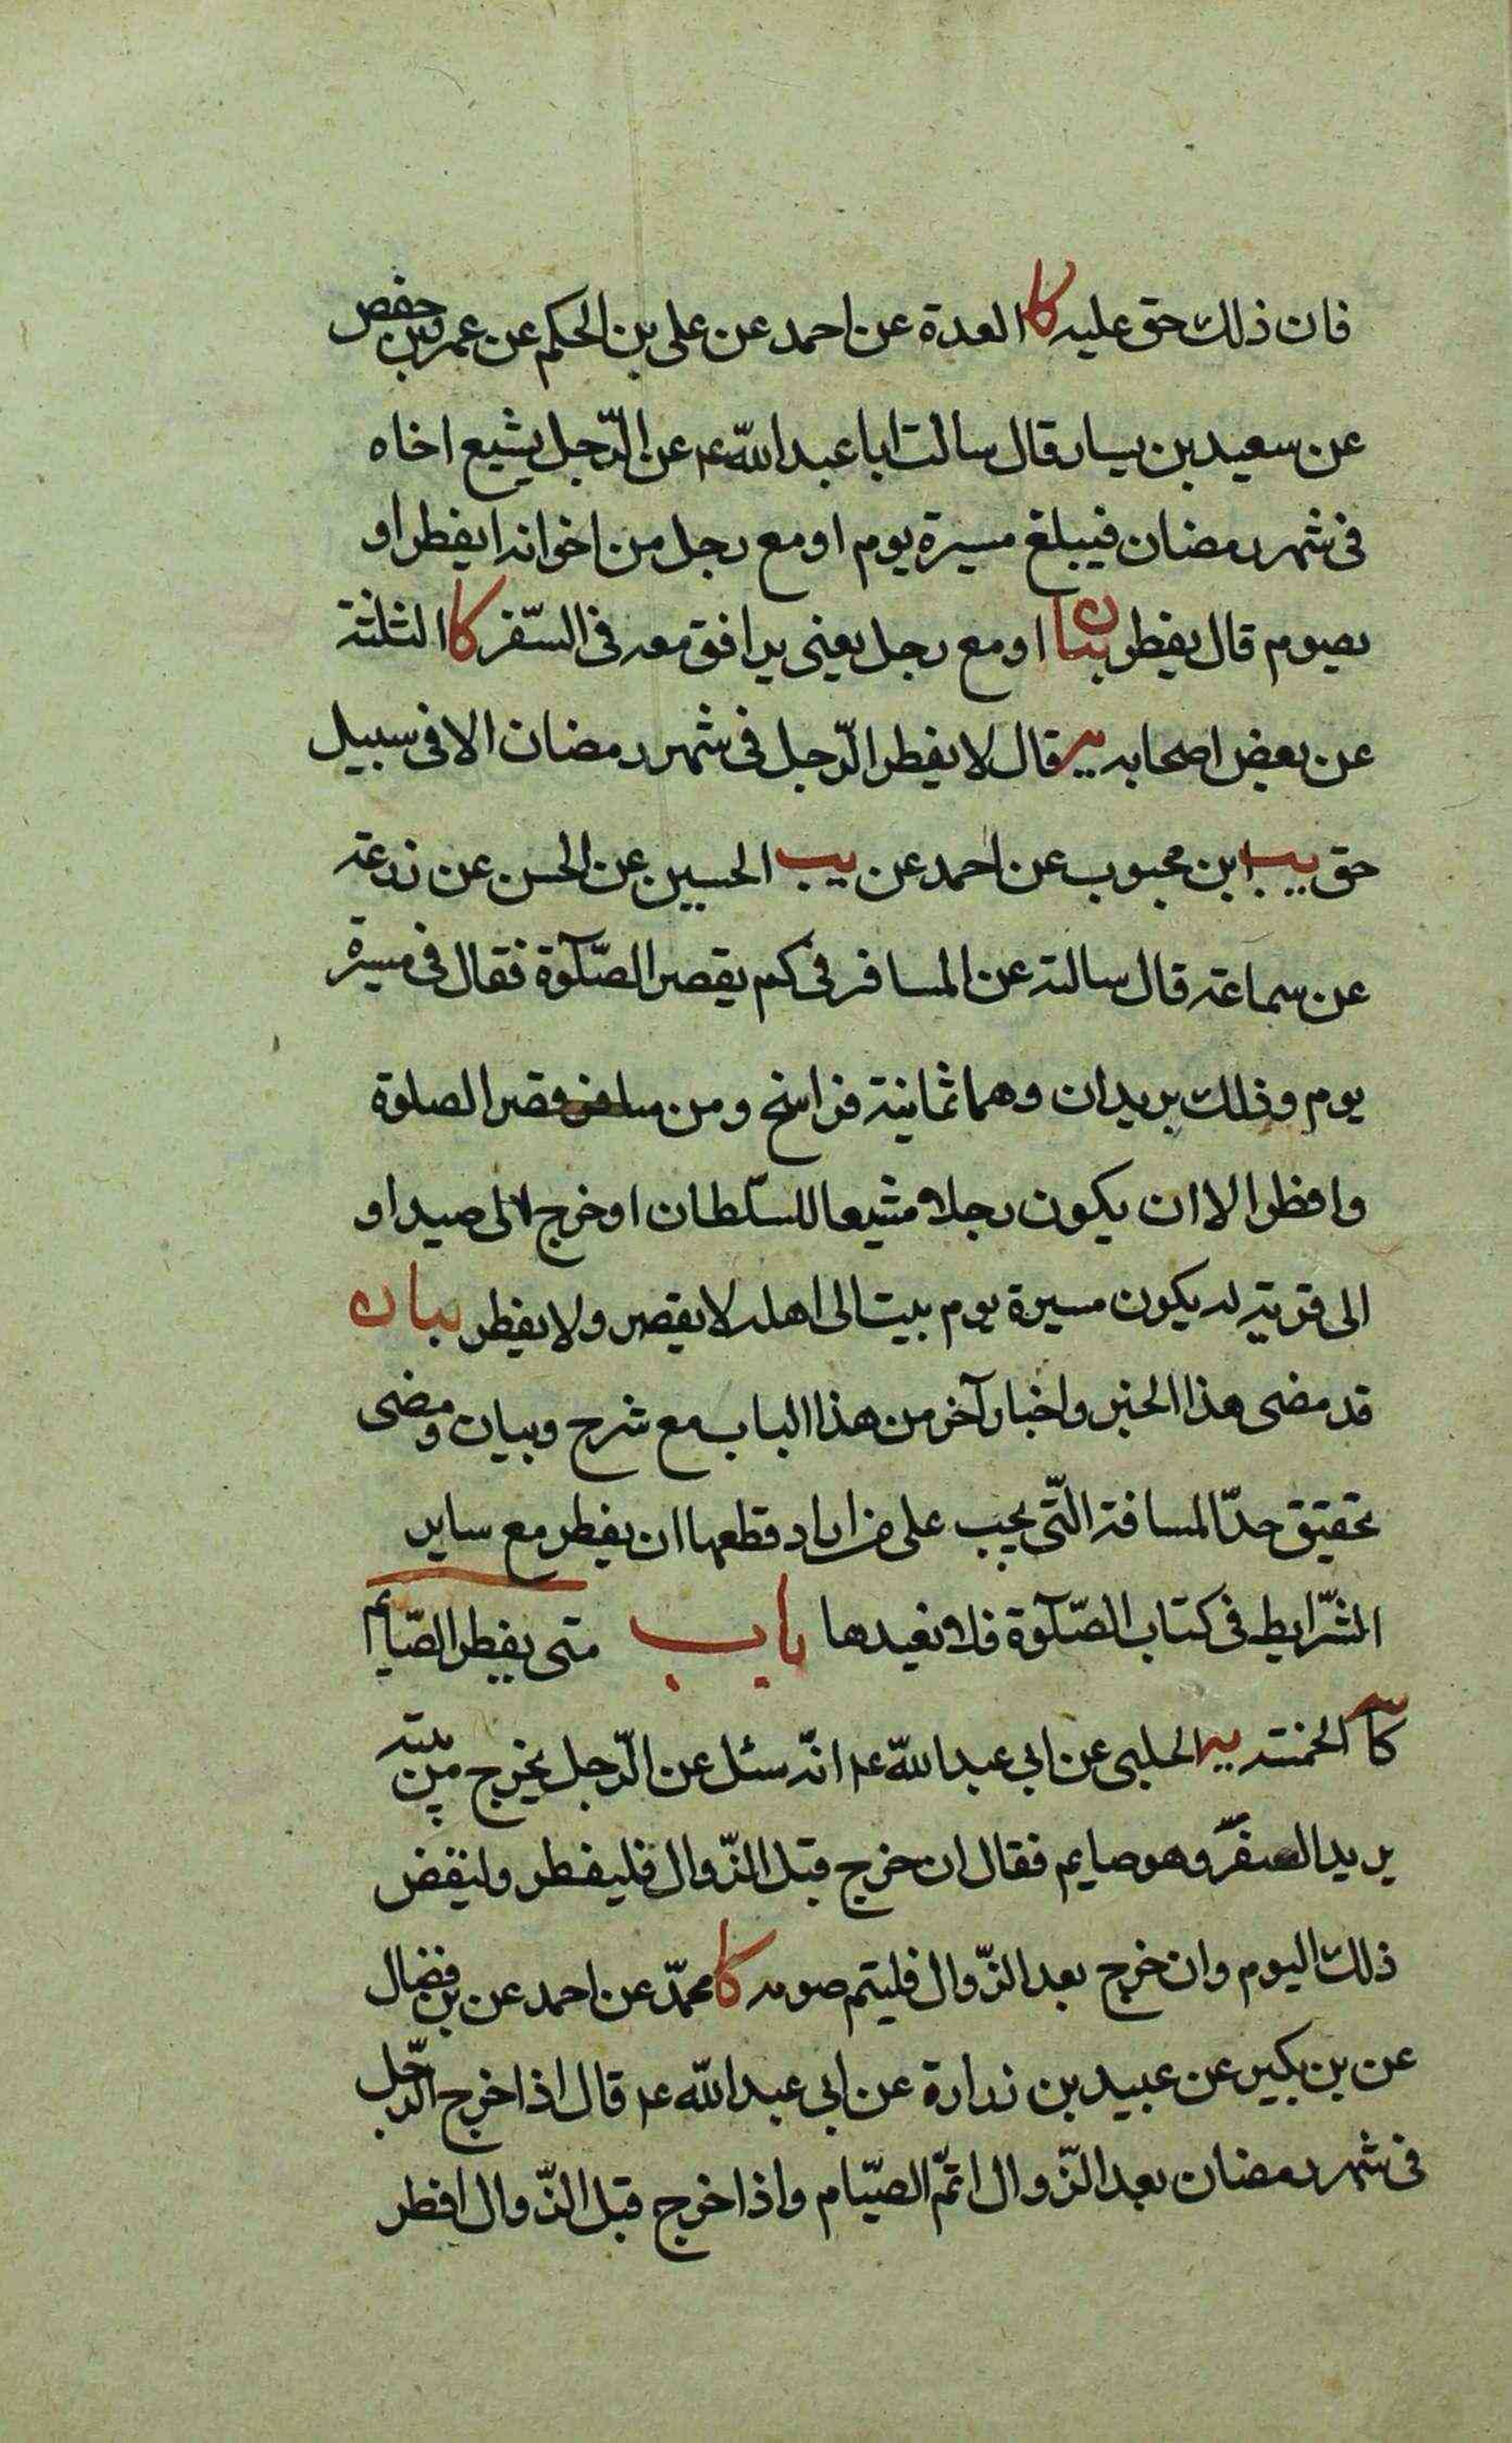 فان ذلك حق عليه كا العدة عن احمد عن على بن الحكم عن عمرو بن حفص
عن سعيد بن يسار قال سالت ابا عبد الله ع عن الرّجل يشيع اخاه
فى شهر رمضان فيبلغ مسيرة يوم او مع رجل من اخوانه ايفطر او
يصوم قال يفطر بيان او مع رجل يعنى يرافق معه فى السّفر كا الثلثة
عن بعض اصحابه ير قال لا يفطر الرّجل فى شهر رمضان الا فى سبيل
حق يب ابن محبوب عن احمد عن يب الحسين عن الحسن عن زرعة
عن سماعة قال سالته عن المسافر فى كم يقصر الصّلوة فقال فى مسيرة
يوم وذلك بريدان وهما ثمانية فراسخ ومن سافر قصر الصلوة
وافطر الا ان يكون رجلا مشيعا للسّلطان او خرج الى صيد او
الى قرية له يكون مسيرة يوم يبيت الى اهله لا يقصر ولا يفطر بيان
قد مضى هذا الخبر واخبار آخر من هذا الباب مع شرح وبيان ومضى
تحقيق حدّ المسافة الّتى يجب على من اراد قطعها ان يفطر مع ساير
الشّرايط فى كتاب الصّلوة فلا نعيدها باب متى يفطر الصّايم
كا الخمسة ير الحلبى عن ابى عبد الله ع انّه سئل عن الرّجل يخرج من بيته
يريد السفر وهو صايم فقال ان خرج قبل الزّوال فليفطر وليقض
ذلك اليوم وان خرج بعد الزّوال فليتم صومه كا محمّد عن احمد عن بن فضال
عن بن بكير عن عبيد بن زرارة عن ابى عبد الله ع قال اذا خرج الرّجل
فى شهر رمضان بعد الزّوال اتمّ الصيّام واذا خرج قبل الزّوال افطر